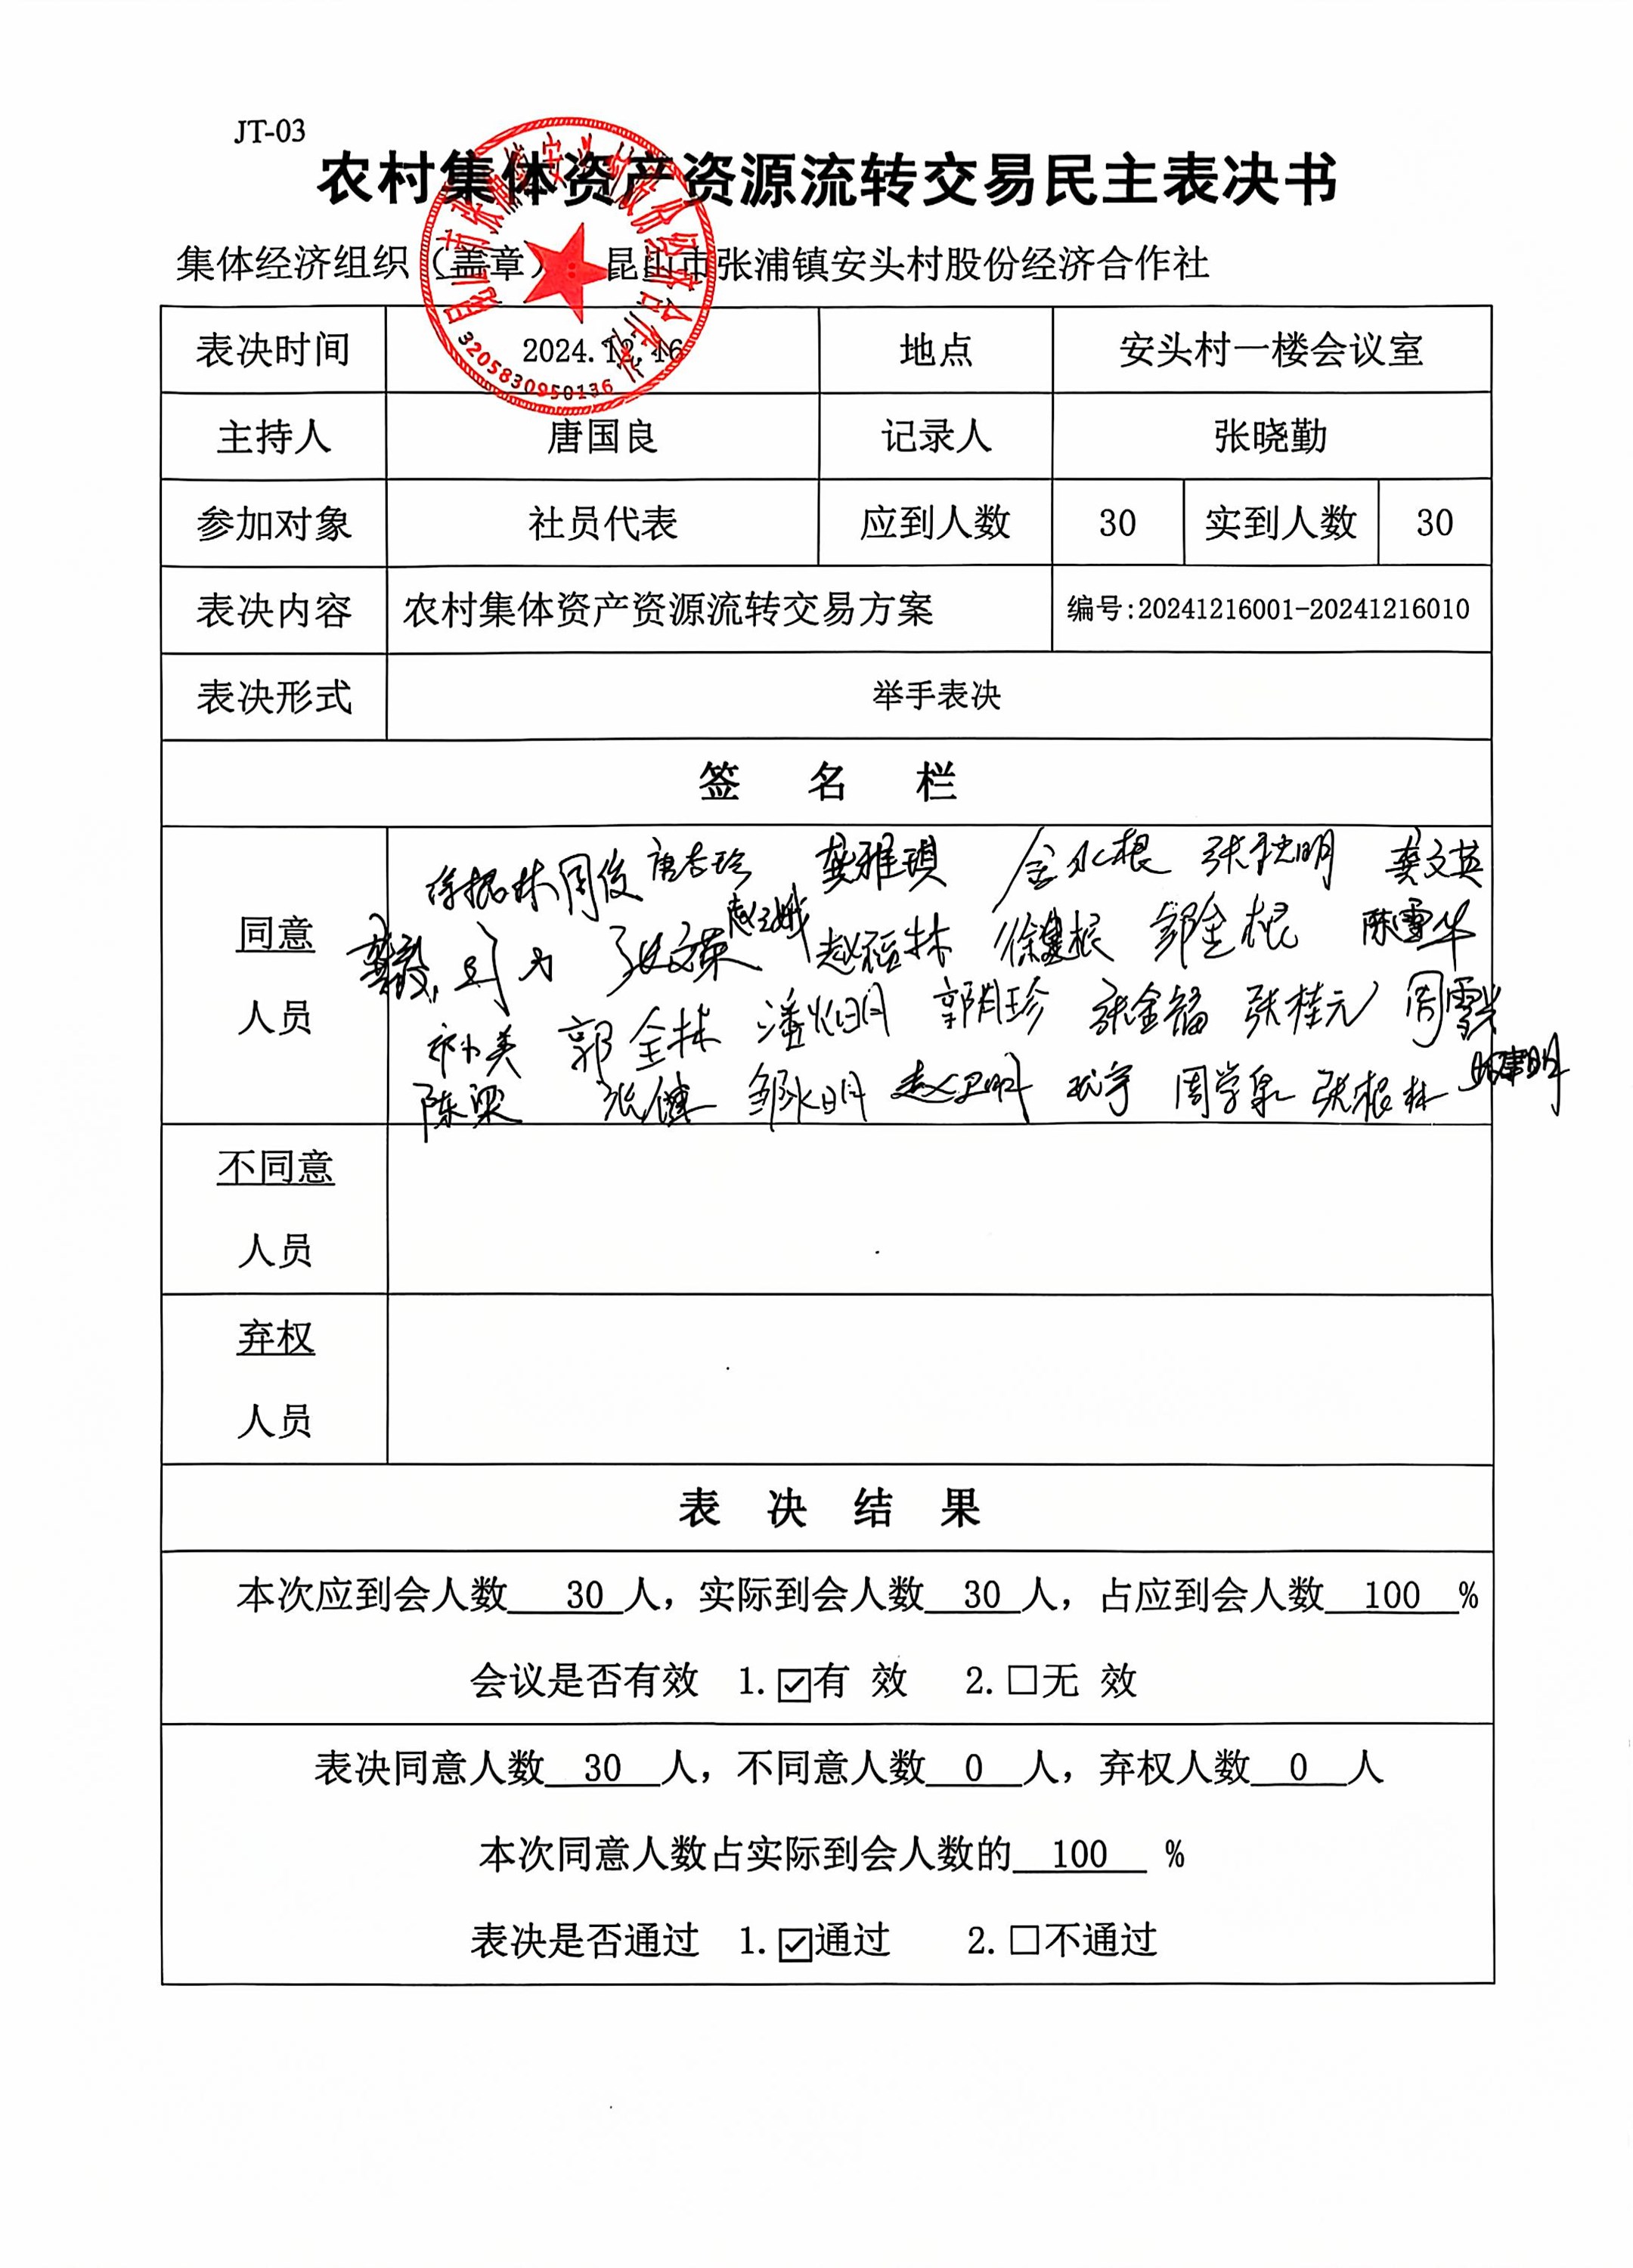 JT-03
农村集体资产资源流转交易民主表决书
集体经济组织（盖章） 昆山市张浦镇安头村股份经济合作社
昆山市张浦镇安头村股份经济合作社
3205830950136
表决时间 2024.12.16 地点 安头村一楼会议室
主持人 唐国良 记录人 张晓勤
参加对象 社员代表 应到人数 30 实到人数 30
表决内容 农村集体资产资源流转交易方案 编号:20241216001-20241216010
表决形式 举手表决
签 名 栏
同意
人员
徐振林 周俊 唐杏珍 龚雅琪 金水根 龚文英
张文英 郭金根 陈雪华
郭全林 郭月珍 张桂元
陈梁 张健 邹水明 赵卫明 周学泉 张根林
不同意
人员
弃权
人员
表 决 结 果
本次应到会人数 30 人，实际到会人数 30 人，占应到会人数 100 %
会议是否有效 1. ☑有 效 2. □无 效
表决同意人数 30 人，不同意人数 0 人，弃权人数 0 人
本次同意人数占实际到会人数的 100 %
表决是否通过 1. ☑通过 2. □不通过